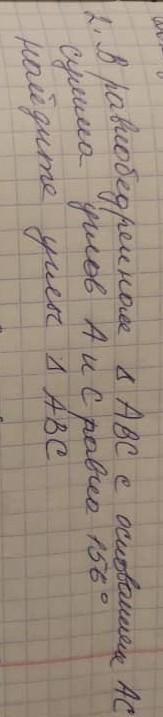 2. В равнобедренном Δ ABC с основанием AC
сумма углов A и C равна 156°
найдите углы Δ ABC